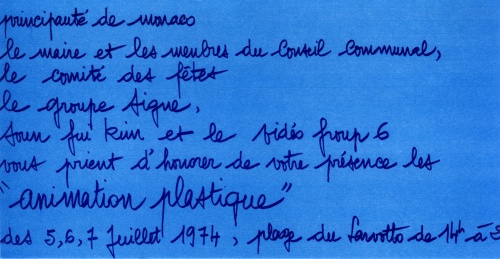 principauté de monaco
le maire et les membres du Conseil Communal,
le comité des fêtes
le groupe Signe,
Soun gui kim et le vidéo group 6
vous prient d'honorer de votre présence les
"animation plastique"
des 5, 6, 7 Juillet 1974, plage du Larvotto de 14h à